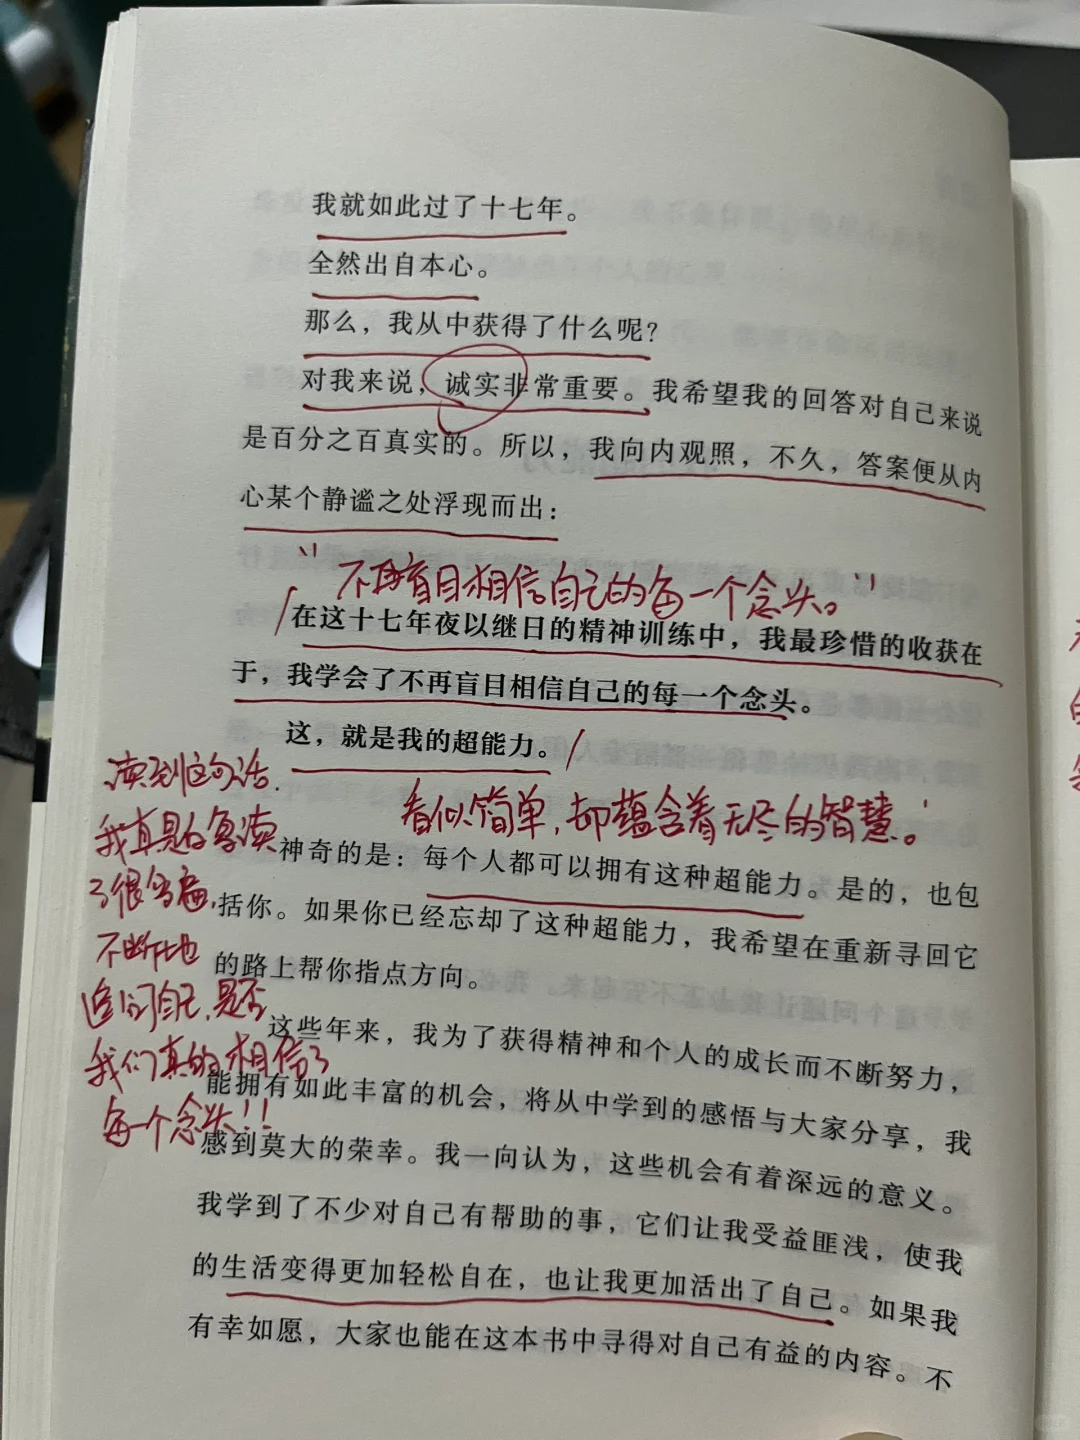 我就如此过了十七年。
全然出自本心。
那么，我从中获得了什么呢？
对我来说，诚实非常重要。我希望我的回答对自己来说
是百分之百真实的。所以，我向内观照，不久，答案便从内
心某个静谧之处浮现而出：
“不再盲目相信自己的每一个念头。”
在这十七年夜以继日的精神训练中，我最珍惜的收获在
于，我学会了不再盲目相信自己的每一个念头。
这，就是我的超能力。
看似简单，却蕴含着无尽的智慧。
读到这句话，
我真是的复读
了很多遍，
不断地
追问自己，是否
我们真的相信了
每一个念头！！
神奇的是：每个人都可以拥有这种超能力。是的，也包
括你。如果你已经忘却了这种超能力，我希望在重新寻回它
的路上帮你指点方向。
这些年来，我为了获得精神和个人的成长而不断努力，
能拥有如此丰富的机会，将从中学到的感悟与大家分享，我
感到莫大的荣幸。我一向认为，这些机会有着深远的意义。
我学到了不少对自己有帮助的事，它们让我受益匪浅，使我
的生活变得更加轻松自在，也让我更加活出了自己。如果我
有幸如愿，大家也能在这本书中寻得对自己有益的内容。不